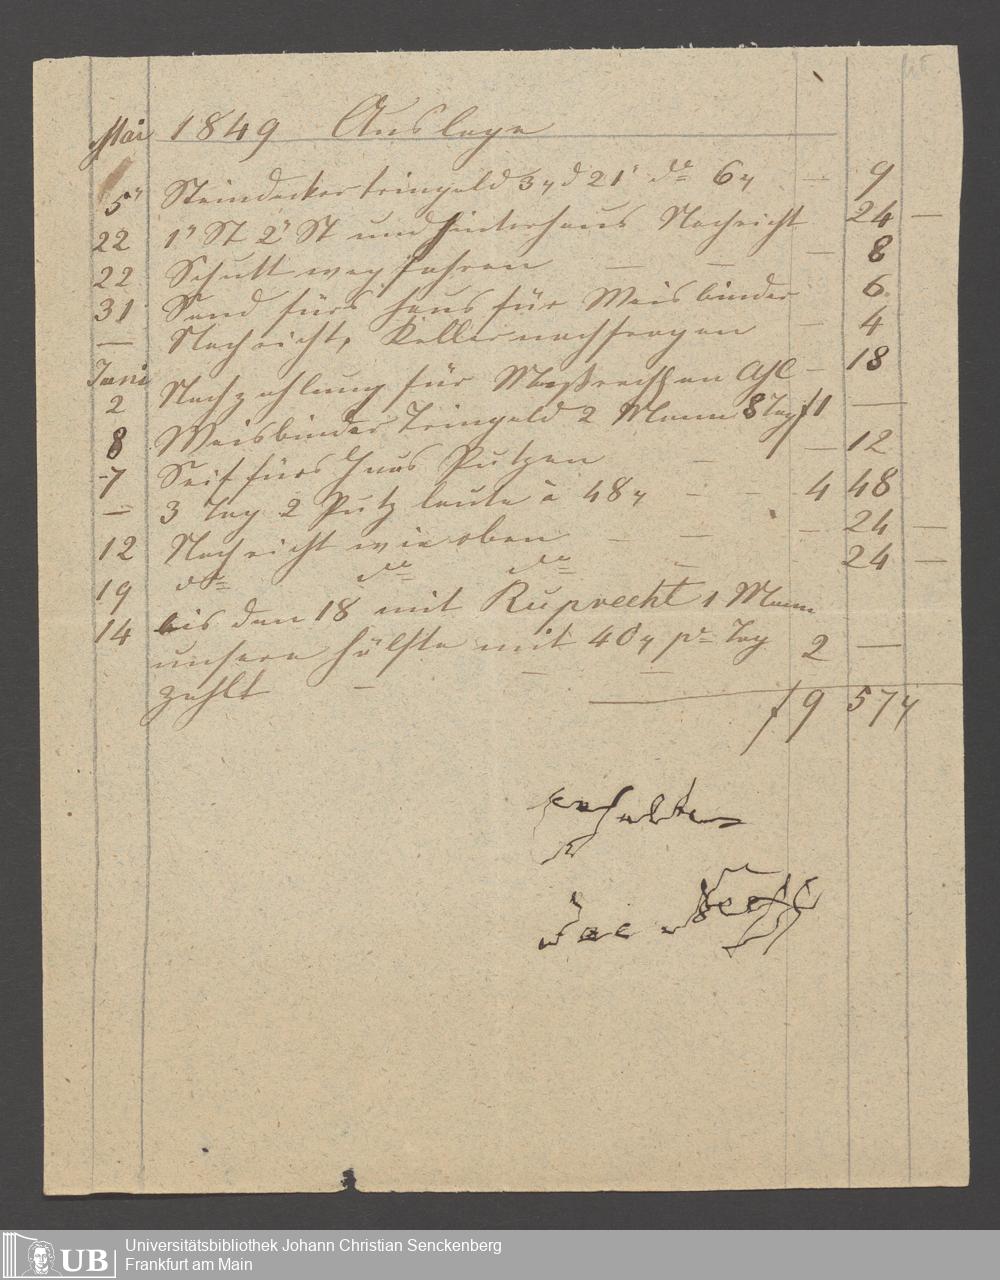 Mai 1849 Auslage
5" Steindecker tringeld 3 x d 21' do 6 x — 9
22 1" St 2" St und hinterhaus Nachricht 24 —
22 Schutt weg fahren — — — 8
31 Sand fürs haus für Weisbinder 6
— Nachricht, Keller nachfragen — 4
Juni
2 Nachzahlung für — 18
8 Weisbinder Tringeld 2 Mann 8 Tag f 1 —
7 Seif fürs Haus Putzen — — 12
— 3 Tag 2 Putz leute à 48 x — — 4 48
12 Nachricht wie oben — — — 24 —
19 do do do — 24 —
14 bis den 18 mit Ruprecht 1 Mann
unsere hälfte mit 40 x pr Tag 2 —
zahlt — — —
f 9 57 x
erhalten
Jac
UB Universitätsbibliothek Johann Christian Senckenberg
Frankfurt am Main